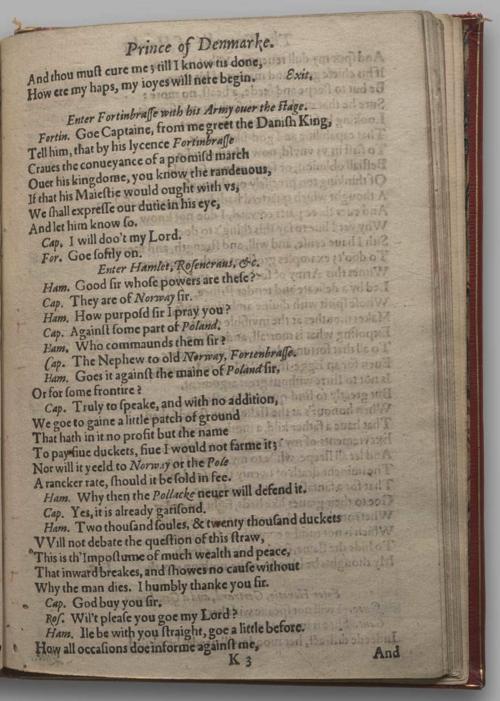 Prince of Denmarke.
And thou muſt cure me; till I know tis done,
How ere my haps, my ioyes will nere begin. Exit.
Enter Fortinbraſſe with his Army ouer the ſtage.
Fortin. Goe Captaine, from me greet the Daniſh King,
Tell him, that by his lycence Fortinbraſſe
Craues the conueyance of a promiſd march
Ouer his kingdome, you know the randeuous,
If that his Maieſtie would ought with vs,
We ſhall expreſſe our dutie in his eye,
And let him know ſo.
Cap. I will doo't my Lord.
For. Goe ſoftly on.
Enter Hamlet, Roſencraus, &c.
Ham. Good ſir whoſe powers are theſe?
Cap. They are of Norway ſir.
Ham. How purpoſd ſir I pray you?
Cap. Againſt ſome part of Poland.
Ham. Who commaunds them ſir?
Cap. The Nephew to old Norway, Fortenbraſſe.
Ham. Goes it againſt the maine of Poland ſir,
Or for ſome frontire?
Cap. Truly to ſpeake, and with no addition,
We goe to gaine a little patch of ground
That hath in it no profit but the name
To pay fiue duckets, fiue I would not farme it;
Nor will it yeeld to Norway or the Pole
A rancker rate, ſhould it be ſold in fee.
Ham. Why then the Pollacke neuer will defend it.
Cap. Yes, it is already gariſond.
Ham. Two thouſand ſoules, & twenty thouſand duckets
VVill not debate the queſtion of this ſtraw,
This is th'Impoſtume of much wealth and peace,
That inward breakes, and ſhowes no cauſe without
Why the man dies. I humbly thanke you ſir.
Cap. God buy you ſir.
Roſ. Wil't pleaſe you goe my Lord?
Ham. Ile be with you ſtraight, goe a little before.
How all occaſions doe informe againſt me,
K 3 And